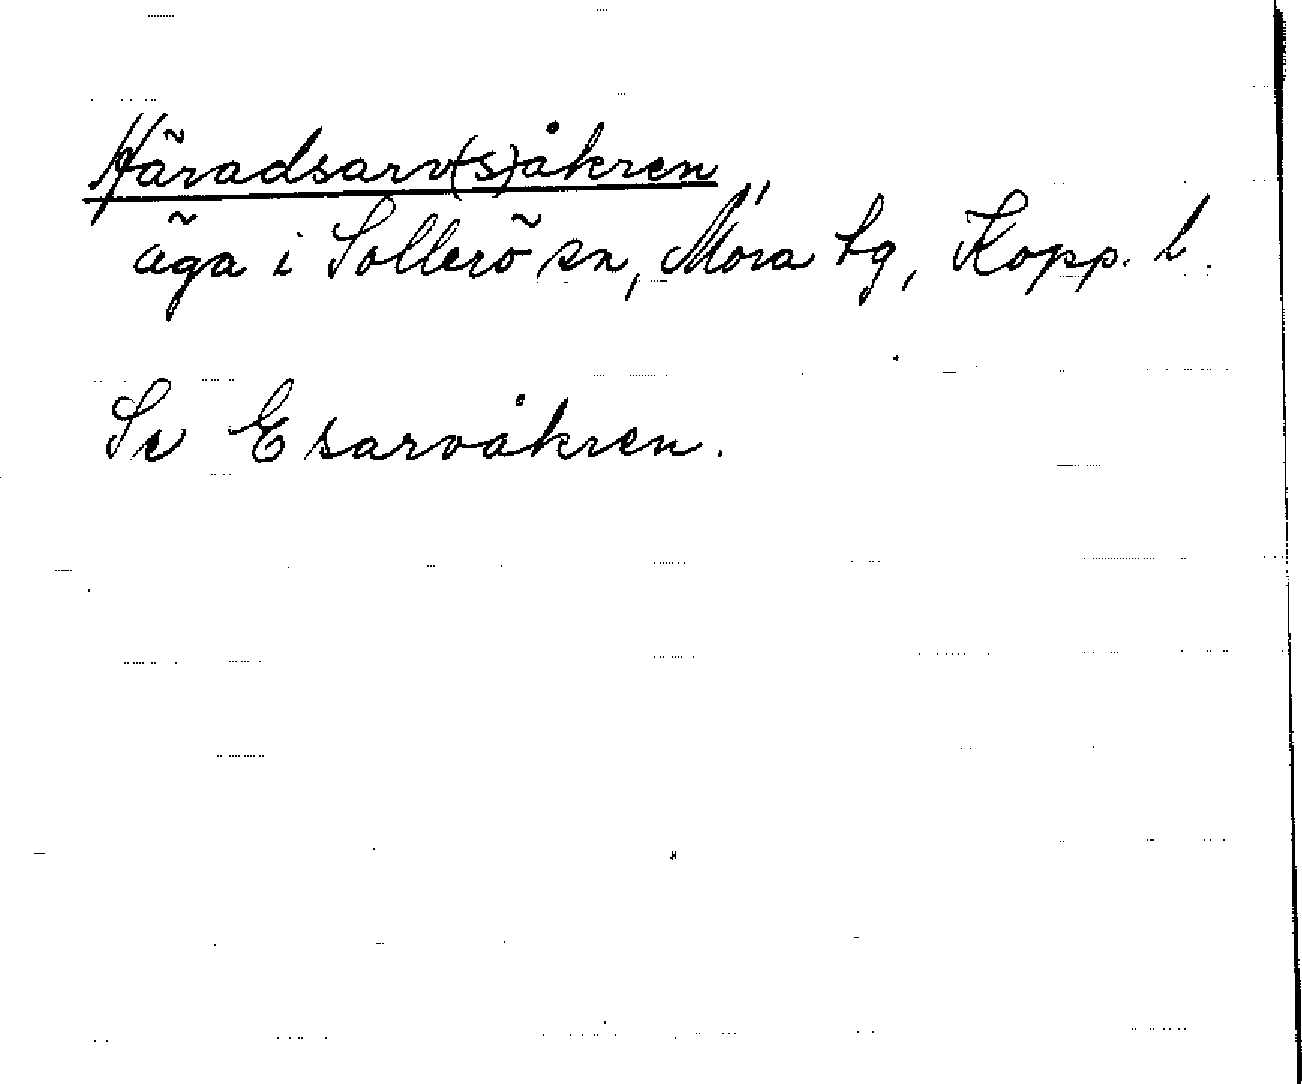 Häradsarv(s)åkren
äga i Sollerö sn, Mora tg, Kopp. l.
Se Esarvåkren.